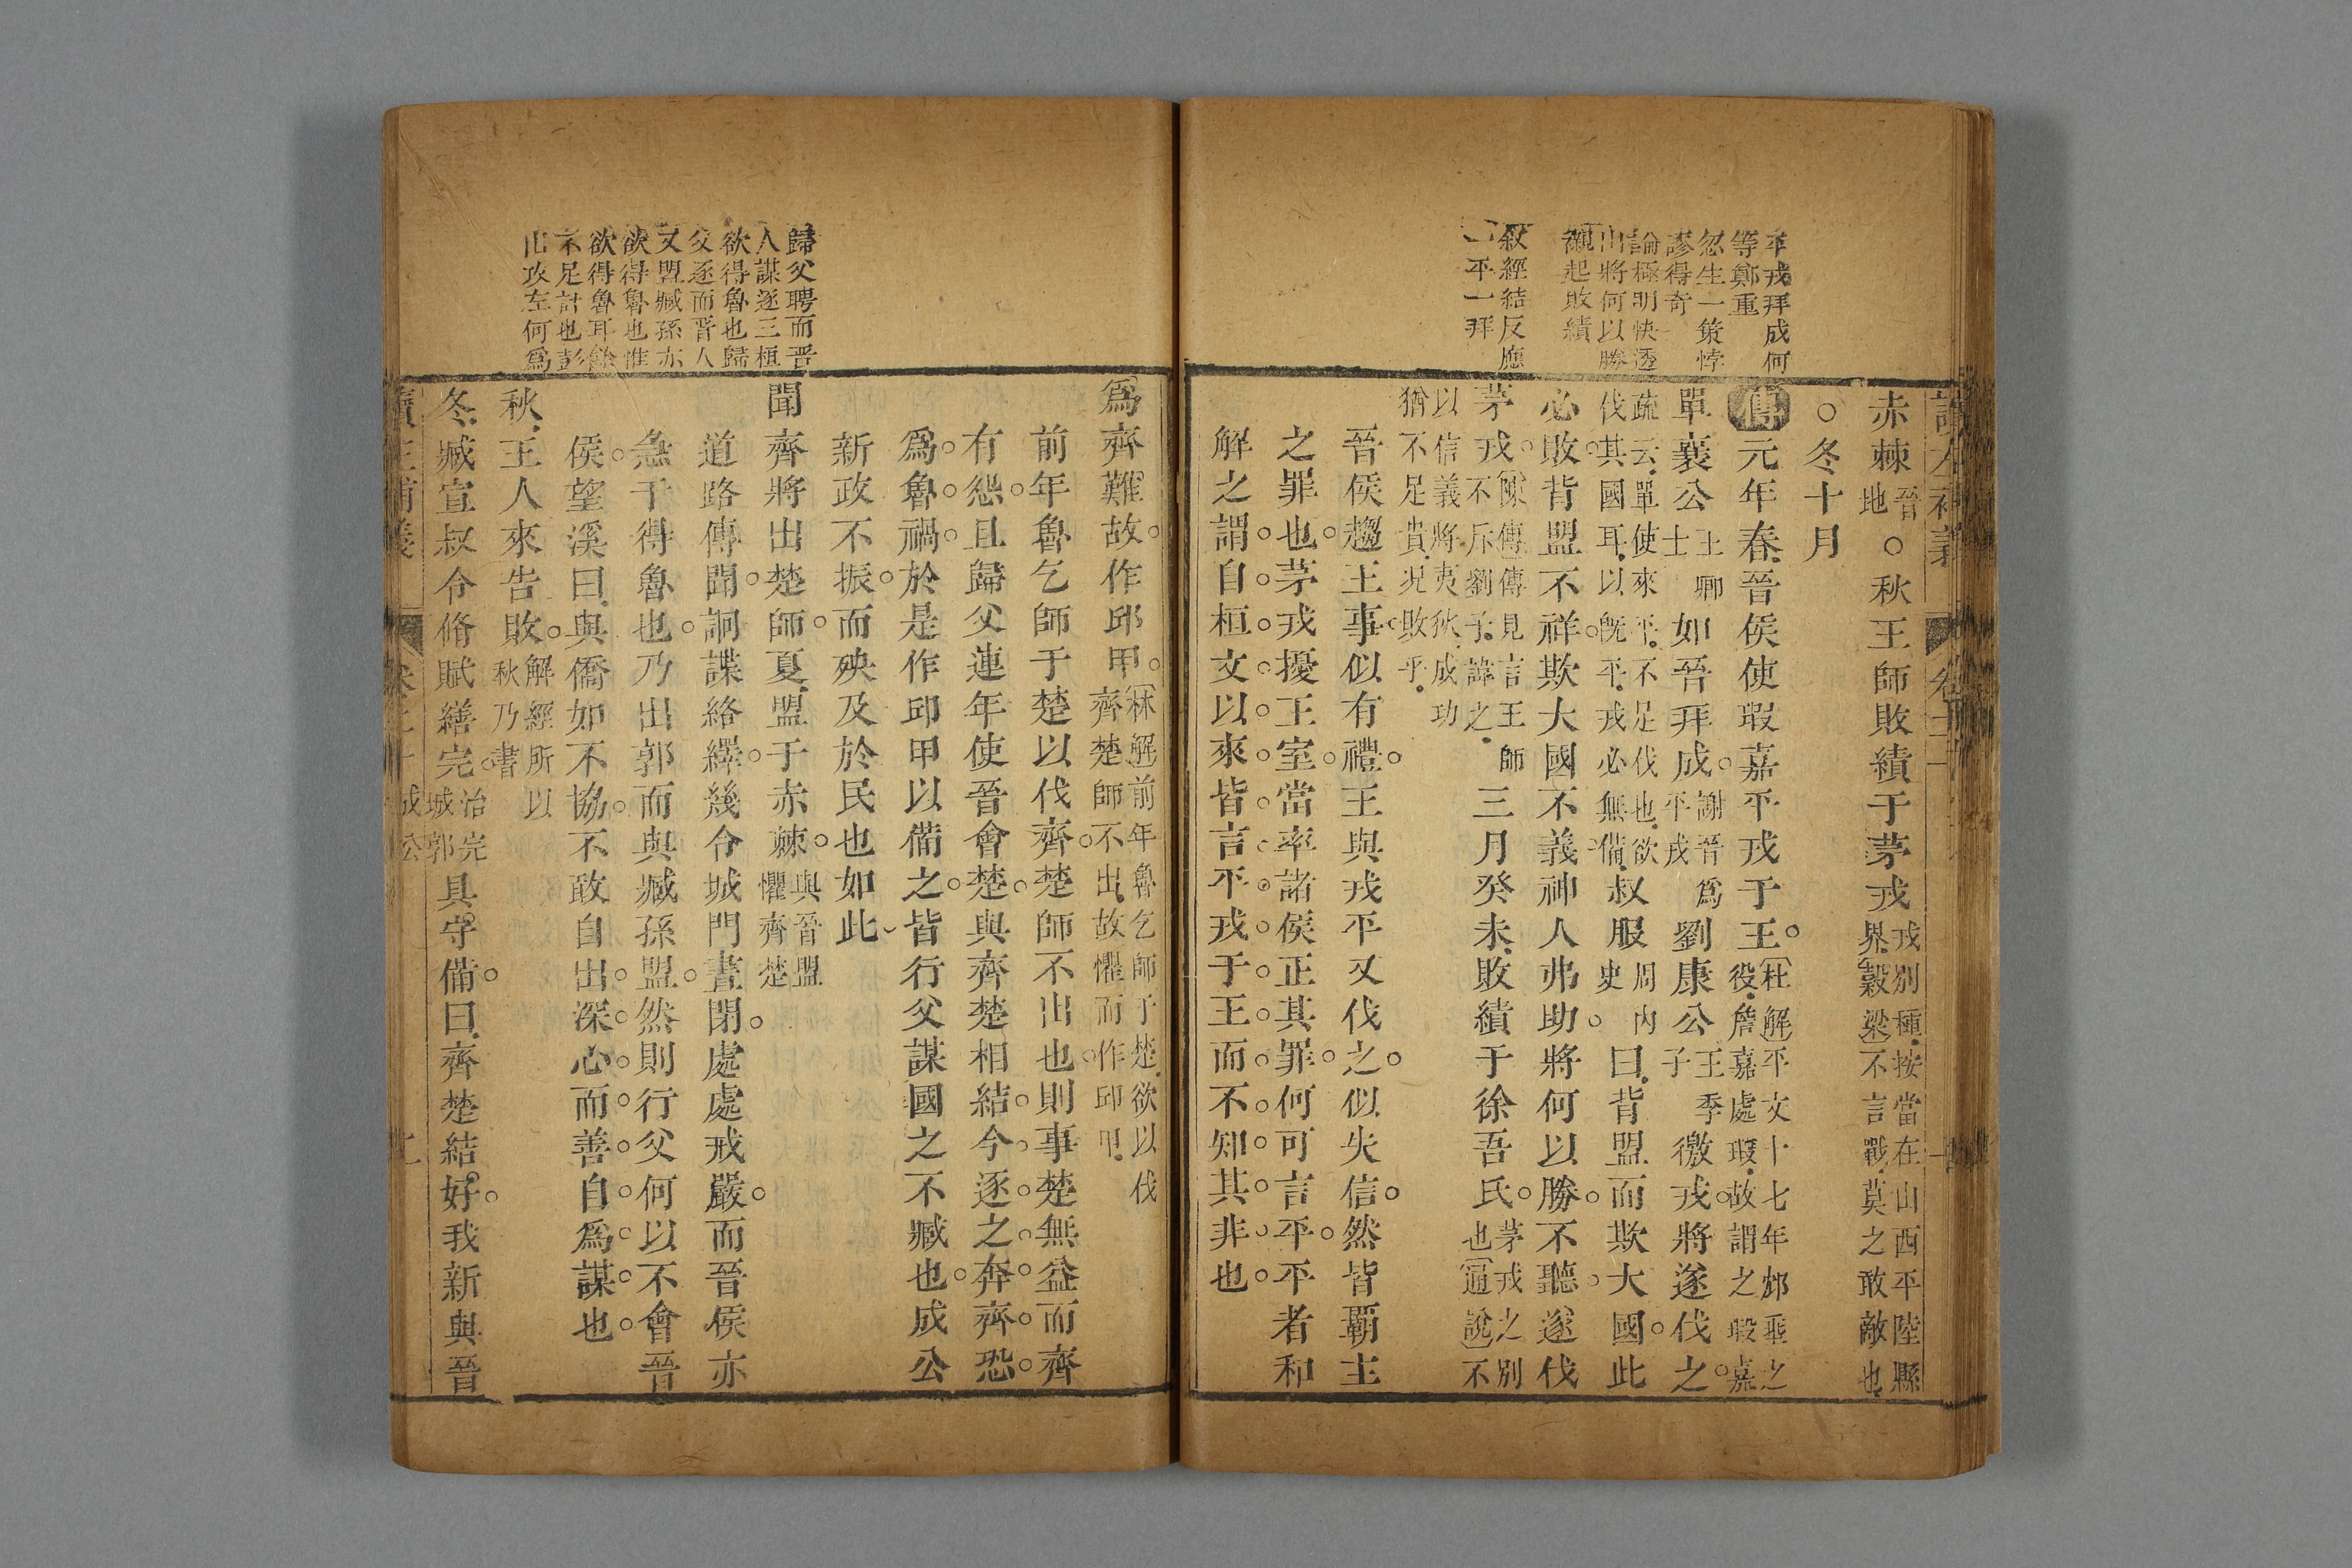 平戎拜成何
等鄭重
忽生一策悖
謬得奇
論極明快透
出將何以勝
襯起敗績
叙經結反應
一平一拜
赤棘晉地○秋王師敗績于茅戎戎別種按當在山西平陸縣界穀梁不言戰莫之敢敵也
○冬十月
傳元年春晉侯使瑕嘉平戎于王杜解平文十七年邥垂之役詹嘉處瑕故謂之瑕嘉
單襄公王卿士如晉拜成謝晉爲平戎劉康公王季子徼戎將遂伐之
疏云單使來平不足伐也欲伐其國耳以旣平戎必無備叔服周內史曰背盟而欺大國此
必敗背盟不祥欺大國不義神人弗助將何以勝不聽遂伐
茅戎陳傳傳見言王師不斥劉子諱之三月癸未敗績于徐吾氏茅戎之別也通說不
以信義將夷狄成功猶不足貴况敗乎
晉侯趨王事似有禮王與戎平又伐之似失信然皆覇主
之罪也茅戎擾王室當率諸侯正其罪何可言平平者和
解之謂自桓文以來皆言平戎于王而不知其非也
歸父聘而晉
人謀逐三桓
欲得魯也歸
父逐而晉人
又盟臧孫亦
欲得魯也惟
欲得魯耳餘
不足計也彭
山攻左何爲
爲齊難故作邱甲林解前年魯乞師于楚欲以伐齊楚師不出故懼而作邱甲
前年魯乞師于楚以伐齊楚師不出也則事楚無益而齊
有怨且歸父連年使晉會楚與齊楚相結今逐之奔齊恐
爲魯禍於是作邱甲以備之皆行父謀國之不臧也成公
新政不振而殃及於民也如此
聞齊將出楚師夏盟于赤棘與晉盟懼齊楚
道路傳聞詗諜絡繹幾令城門晝閉處處戒嚴而晉侯亦
急于得魯也乃出郭而與臧孫盟然則行父何以不會晉
侯望溪曰與僑如不協不敢自出深心而善自爲謀也
秋王人來告敗解經所以秋乃書
冬臧宣叔令脩賦繕完治完城郭具守備曰齊楚結好我新與晉